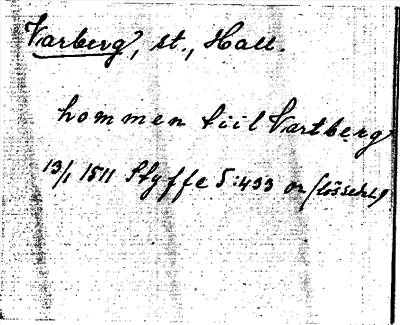 Varberg, st., Hall.
hommen tiil Vartberg
13/1 1511 Styffe 5:433 or